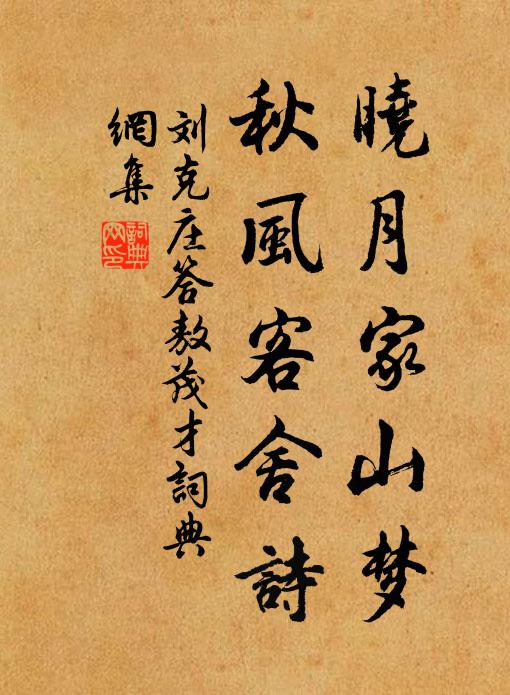 曉月家山梦
秋風客舍詩
刘克庄答敖茂才詞典
網集
詞典
网印